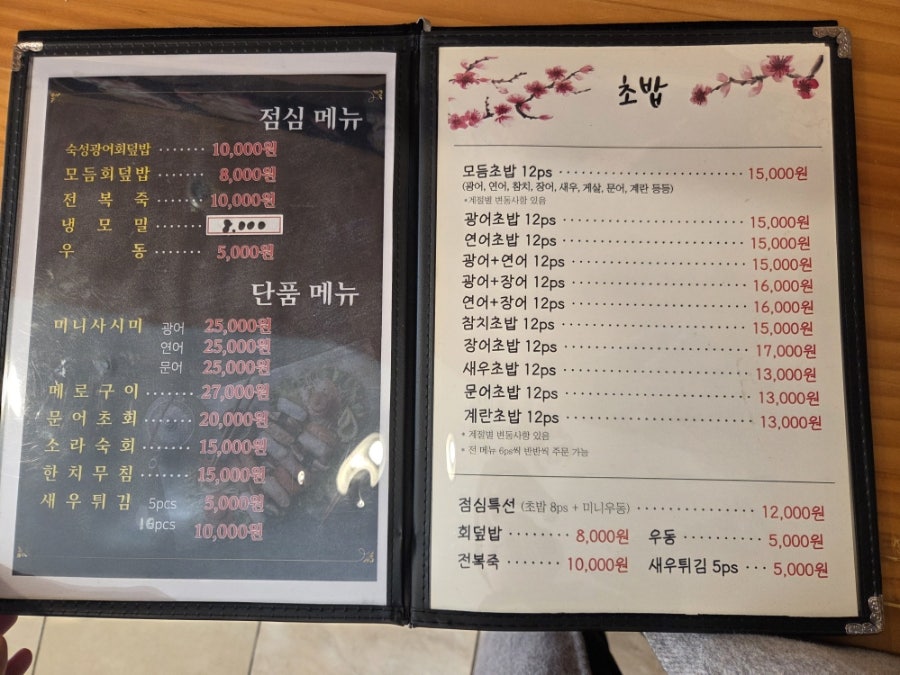 점심 메뉴
숙성광어회덮밥 ······· 10,000원
모듬회덮밥 ······· 8,000원
전복죽 ······· 10,000원
냉모밀 ······· 8,000
우동 ······· 5,000원
단품 메뉴
미니사시미 광어 25,000원
연어 25,000원
문어 25,000원
메로구이 ······· 27,000원
문어초회 ······· 20,000원
소라숙회 ······· 15,000원
한치무침 ······· 15,000원
새우튀김 5pcs 5,000원
10,000원
초밥
모듬초밥 12ps ······· 15,000원
(광어, 연어, 참치, 장어, 새우, 게살, 문어, 계란 등등)
* 계절별 변동사항 있음
광어초밥 12ps ······· 15,000원
연어초밥 12ps ······· 15,000원
광어+연어 12ps ······· 15,000원
광어+장어 12ps ······· 16,000원
연어+장어 12ps ······· 16,000원
참치초밥 12ps ······· 15,000원
장어초밥 12ps ······· 17,000원
새우초밥 12ps ······· 13,000원
문어초밥 12ps ······· 13,000원
계란초밥 12ps ······· 13,000원
* 계절별 변동사항 있음
* 전 메뉴 6ps씩 반반씩 주문 가능
점심특선 (초밥 8ps + 미니우동) ······· 12,000원
회덮밥 ······· 8,000원 우동 ······· 5,000원
전복죽 ······· 10,000원 새우튀김 5ps ··· 5,000원